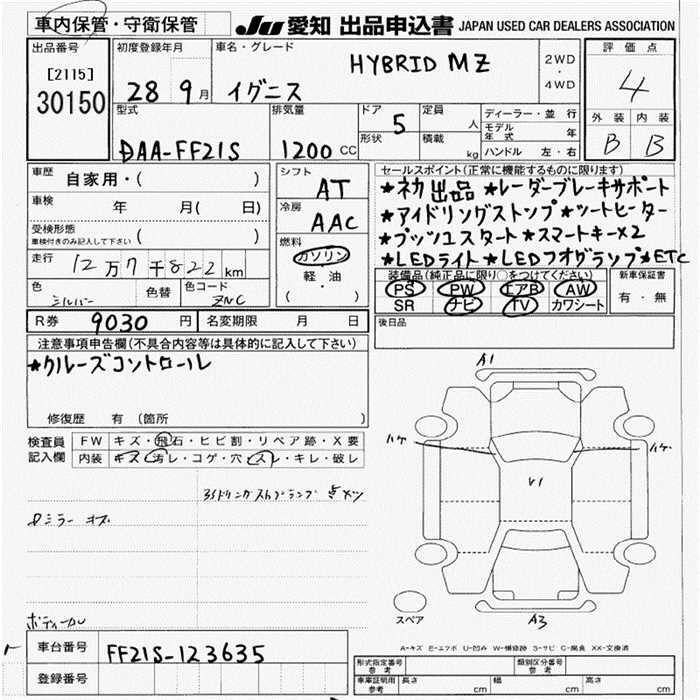 車内保管・守衛保管
JU 愛知 出品申込書 JAPAN USED CAR DEALERS ASSOCIATION
出品番号
[2115]
30150
初度登録年月
28 9月
車名・グレード
イグニス HYBRID MZ
2WD
・
4WD
評価点
4
外装 内装
B B
型式
DAA-FF21S
排気量
1200 CC
ドア
5
形状
定員
人
積載
kg
ディーラー・並行
モデル年式 年
ハンドル 左・右
車歴 自家用・( )
車検 年 月( 日)
受検形態
車検付きのみ記入して下さい ( )
走行 12万7千822km
色 シルバー 色替 色コード ZNC
シフト AT
冷房 AAC
燃料
ガソリン
軽・油
( ・ )
セールスポイント(正常に機能するものに限ります)
★ネカ出品 ★レーダーブレーキサポート
★アイドリングストップ ★シートヒーター
★プッシュスタート ★スマートキー×2
★LEDライト ★LEDフォグランプ ★ETC
装備品(純正品に限り○をつけてください)
PS PW エアB AW
SR ナビ TV カワシート
新車保証書
有・無
R券 9030円 名変期限 月 日
後日品
注意事項申告欄(不具合内容等は具体的に記入して下さい)
★クルーズコントロール
修復歴 有 (箇所 )
検査員記入欄
FW キズ・飛石・ヒビ割・リペア跡・X要
内装 キズ・汚レ・コゲ・穴・スレ・キレ・破レ
アイドリングストップランプ 点メツ
ボディカル
A1
ハゲ
ハゲ
V1
A3
スペア
A-キズ E-エクボ U-凹み W-補修跡 S-サビ C-腐食 XX-交換済
車台番号 FF21S-123635
登録番号
形式指定番号 参考
類別区分番号 参考
車庫証明用 参考 長さ cm 幅 cm 高さ cm